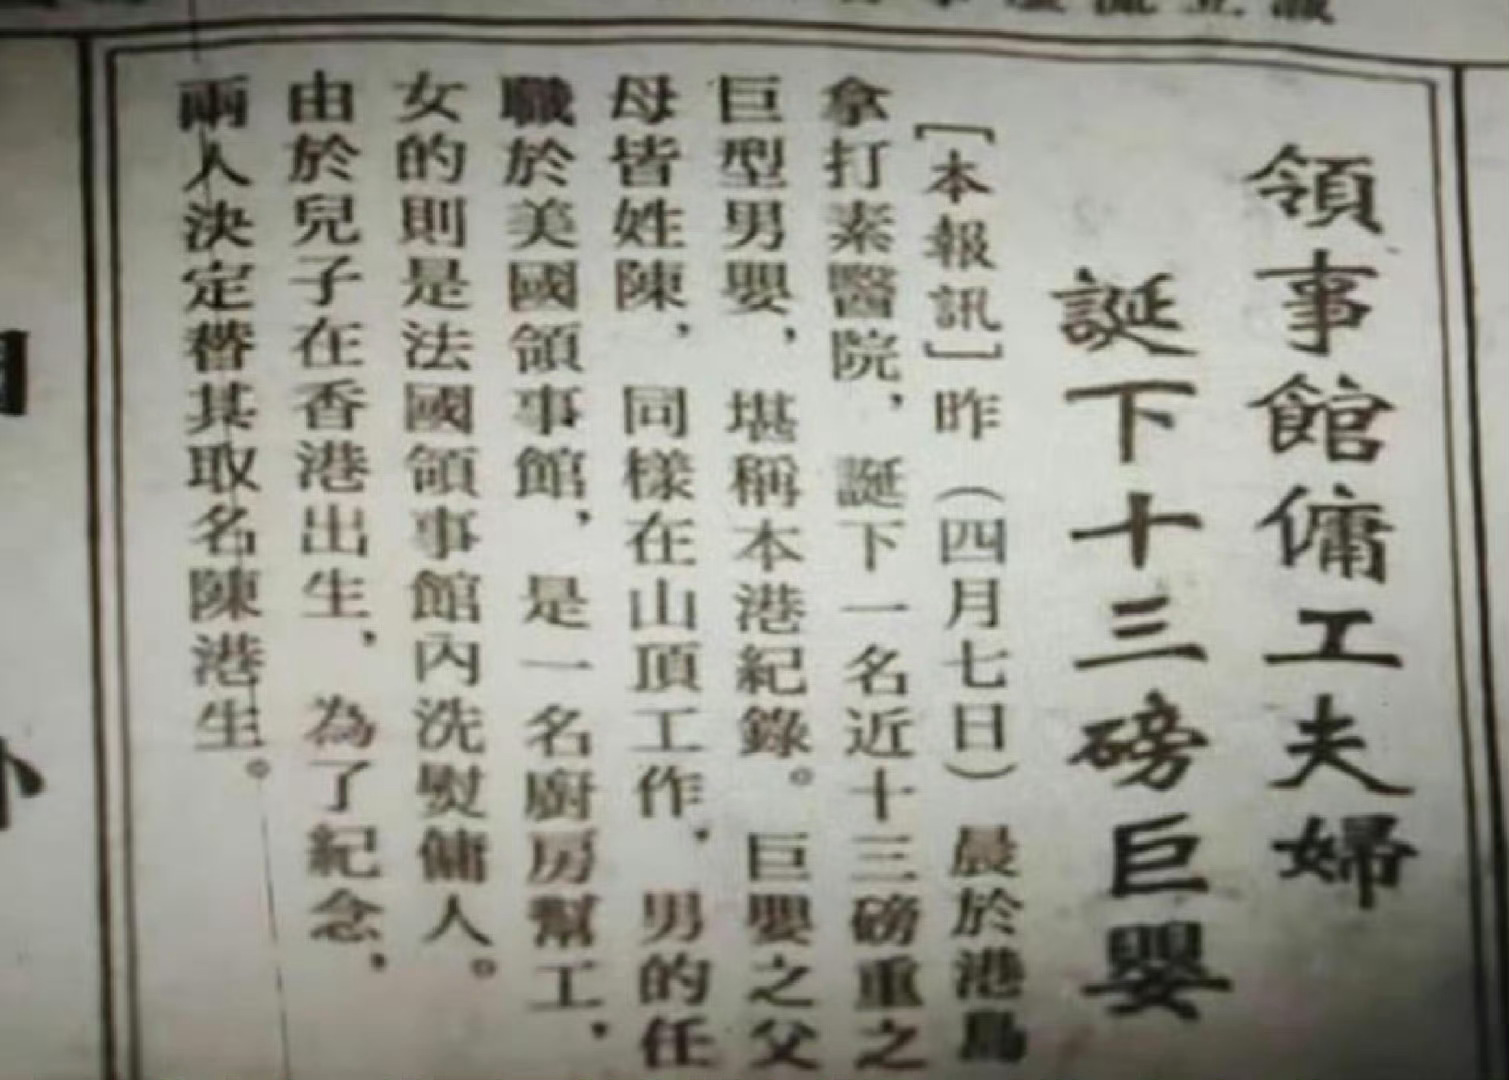 領事館傭工夫婦
誕下十三磅巨嬰
［本報訊］昨（四月七日）晨於港島
拿打素醫院，誕下一名近十三磅重之
巨型男嬰，堪稱本港紀錄。巨嬰之父
母皆姓陳，同樣在山頂工作，男的任
職於美國領事館，是一名廚房幫工，
女的則是法國領事館內洗熨傭人。
由於兒子在香港出生，為了紀念，
兩人決定替其取名陳港生。